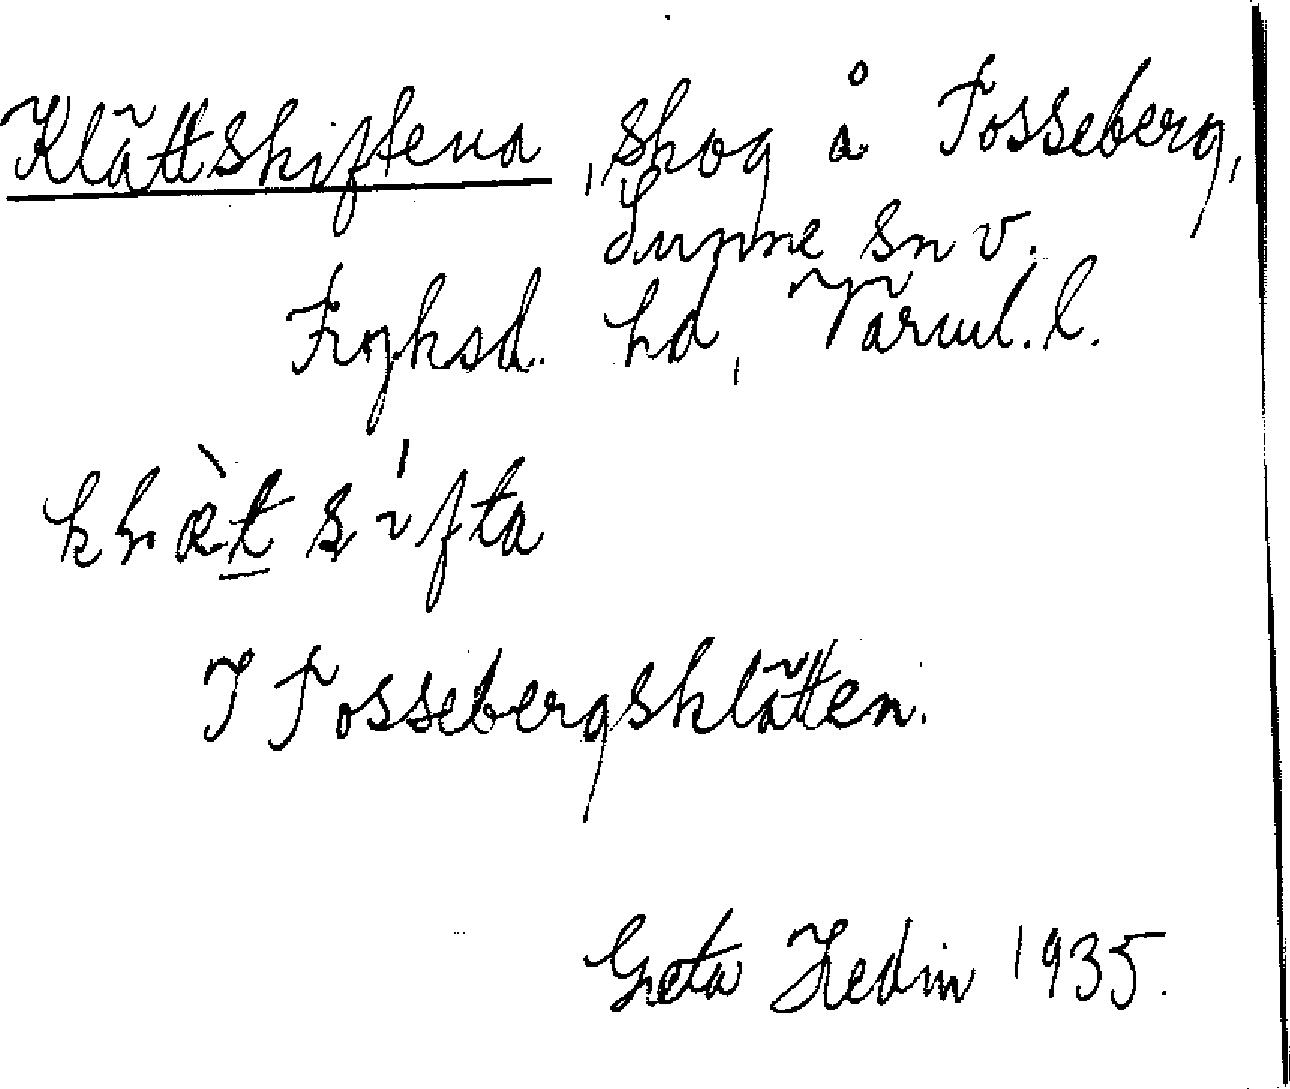 Klättskiftena, skog å Fosseberg,
Sunne sn v.
Fryksd. hd, Värml. l.
I Fossebergsklätten.
Greta Hedin 1935.